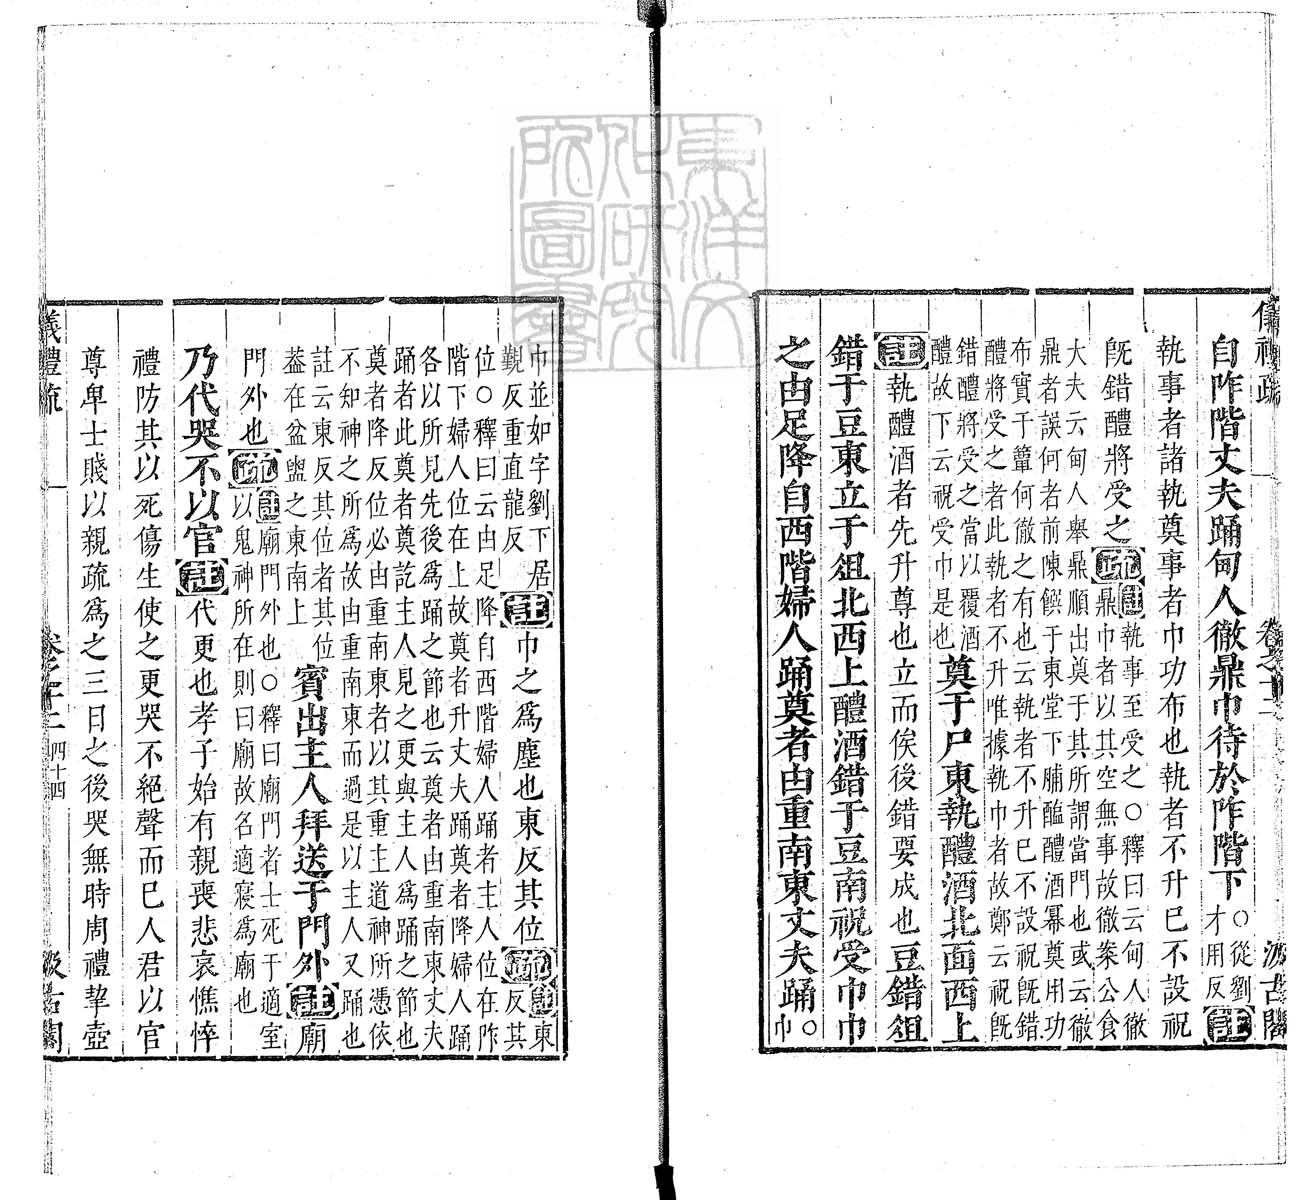 儀禮疏　卷之十二　汲古閣
自阼階丈夫踊甸人徹鼎巾待於阼階下〇從劉才用反註
執事者諸執奠事者巾功布也執者不升巳不設祝
既錯醴將受之疏註執事至受之〇釋曰云甸人徹
鼎巾者以其空無事故徹案公食
大夫云甸人舉鼎順出奠于其所謂當門也或云徹
鼎者誤何者前陳饌于東堂下脯醢醴酒冪奠用功
布實于簞何徹之有也云執者不升巳不設祝既錯
醴將受之者此執者不升唯據執巾者故鄭云祝既
錯醴將受之當以覆酒
醴故下云祝受巾是也
奠于尸東執醴酒北面西上
註執醴酒者先升尊也立而俟後錯要成也豆錯俎
錯于豆東立于俎北西上醴酒錯于豆南祝受巾巾
之由足降自西階婦人踊奠者由重南東丈夫踊〇巾
巾並如字劉下居
覲反重直龍反
註巾之為塵也東反其位疏註東
反其
位〇釋曰云由足降自西階婦人踊者主人位在阼
階下婦人位在上故奠者升丈夫踊奠者降婦人踊
各以所見先後為踊之節也云奠者由重南東丈夫
踊者此奠者奠訖主人見之更與主人為踊之節也
奠者降反位必由重南東者以其重主道神所憑依
不知神之所為故由重南東而過是以主人又踊也
註云東反其位者其位
蓋在盆盥之東南上
賓出主人拜送于門外註廟
門外也疏註廟門外也〇釋曰廟門者士死于適室
以鬼神所在則曰廟故名適寢為廟也
乃代哭不以官註代更也孝子始有親喪悲哀憔悴
禮防其以死傷生使之更哭不絕聲而已人君以官
尊卑士賤以親疏為之三日之後哭無時周禮挈壺
儀禮疏　卷之十二　四十四　汲古閣
東洋文化研究所圖書